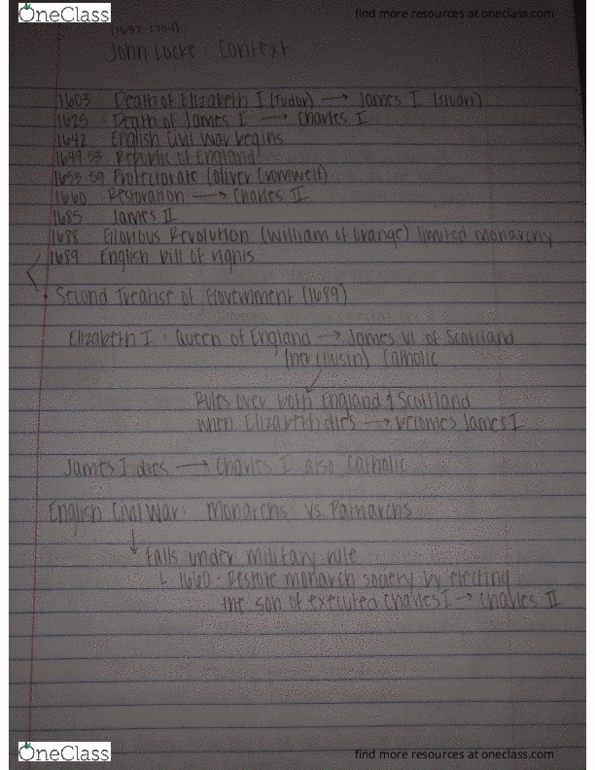 OneClass
find more resources at oneclass.com
(1632-1704)
John Locke: Context
1603 Death of Elizabeth I (Tudor) → James I (Stuart)
1625 Death of James I → Charles I
1642 English Civil War begins
1649-53 Republic of England
1653-59 Protectorate (Oliver Cromwell)
1660 Restoration → Charles II
1685 James II
1688 Glorious Revolution (William of Orange) limited monarchy
1689 English bill of rights
Second Treatise of Government (1689)
Elizabeth I: Queen of England → James VI of Scotland
(her cousin) Catholic
Rules over both England & Scotland
when Elizabeth dies → becomes James I
James I dies → Charles I also Catholic
English Civil War: Monarchs vs. Patriarchs
↓ falls under military rule
└ 1660 - Restore monarch society by electing
the son of executed Charles I → Charles II
OneClass
find more resources at oneclass.com